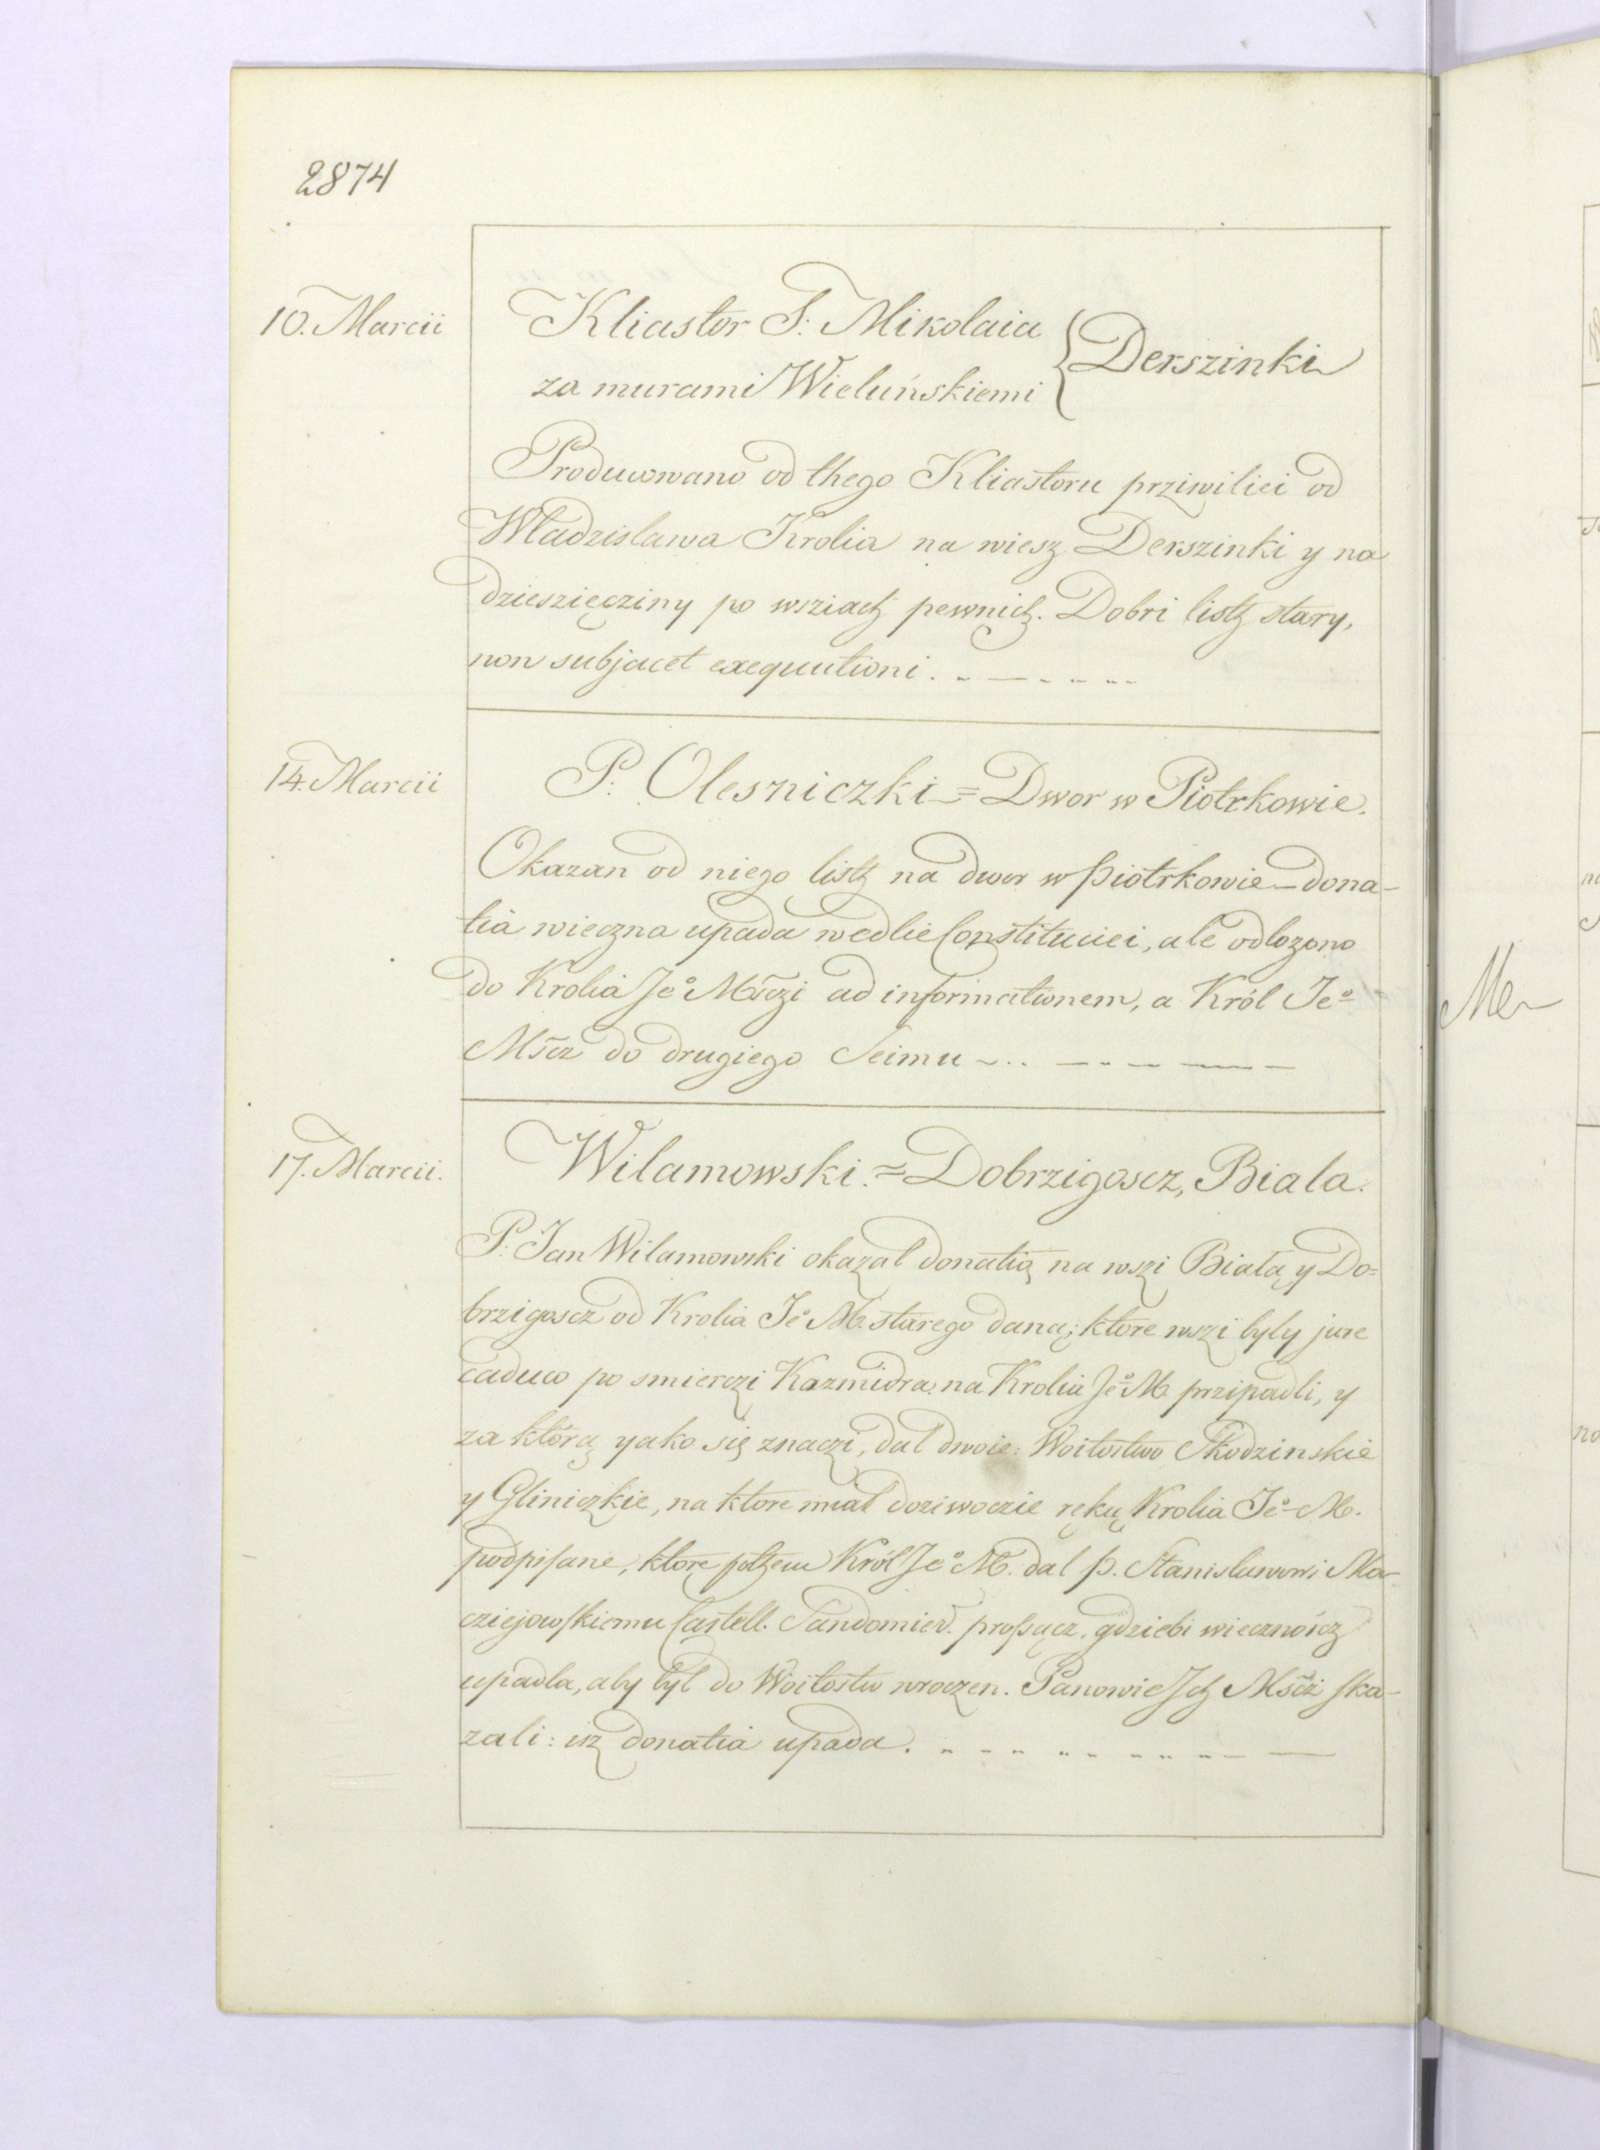 2874
10. Marcii
Kliastor S: Mikolaia
za murami Wieluńskiemi
Derszinki
Producowano od thego Kliastoru prziwiliei od
Wladzislawa Krolia na wiesz Derszinki y na
dzieszięcziny po wsziach pewnich. Dobri listh stary,
non subjacet exequutioni.
14. Marcii
P: Olesniczki = Dwor w Piotrkowie.
Okazan od niego listh na dwor w Piotrkowie – dona-
tia wieczna upada wedlie Constituciei, ale odlozono
do Krolia Jeº Mśczi ad informationem, a Król Jeº
Mścz do drugiego Seimu
17. Marcii.
Wilamowski. = Dobrzigoscz, Biala.
P: Jan Wilamowski okazal donatią na wszi Bialą y Do=
brzigoscz od Krolia Jeº M. starego daną; ktore wszi byly jure
caduco po smierczi Kazmidra na Krolia Jeº M. przipadli, y
za którą yako się znaczi, dal dwoie: Woitostwo Skodzinskie
y Gliniczkie, na ktore mial doziwoczie ręką Krolia Jeº M.
podpisane, ktore potem Król Jeº M. dal p. Stanislawowi Ma-
cziejowskiemu Castell. Sandomier. prosząc, gdziebi wiecznoścz
upadla, aby byl do Woitostw wroczen. Panowie Ich Mśczi ska-
zali: isz donatia upada.
Me